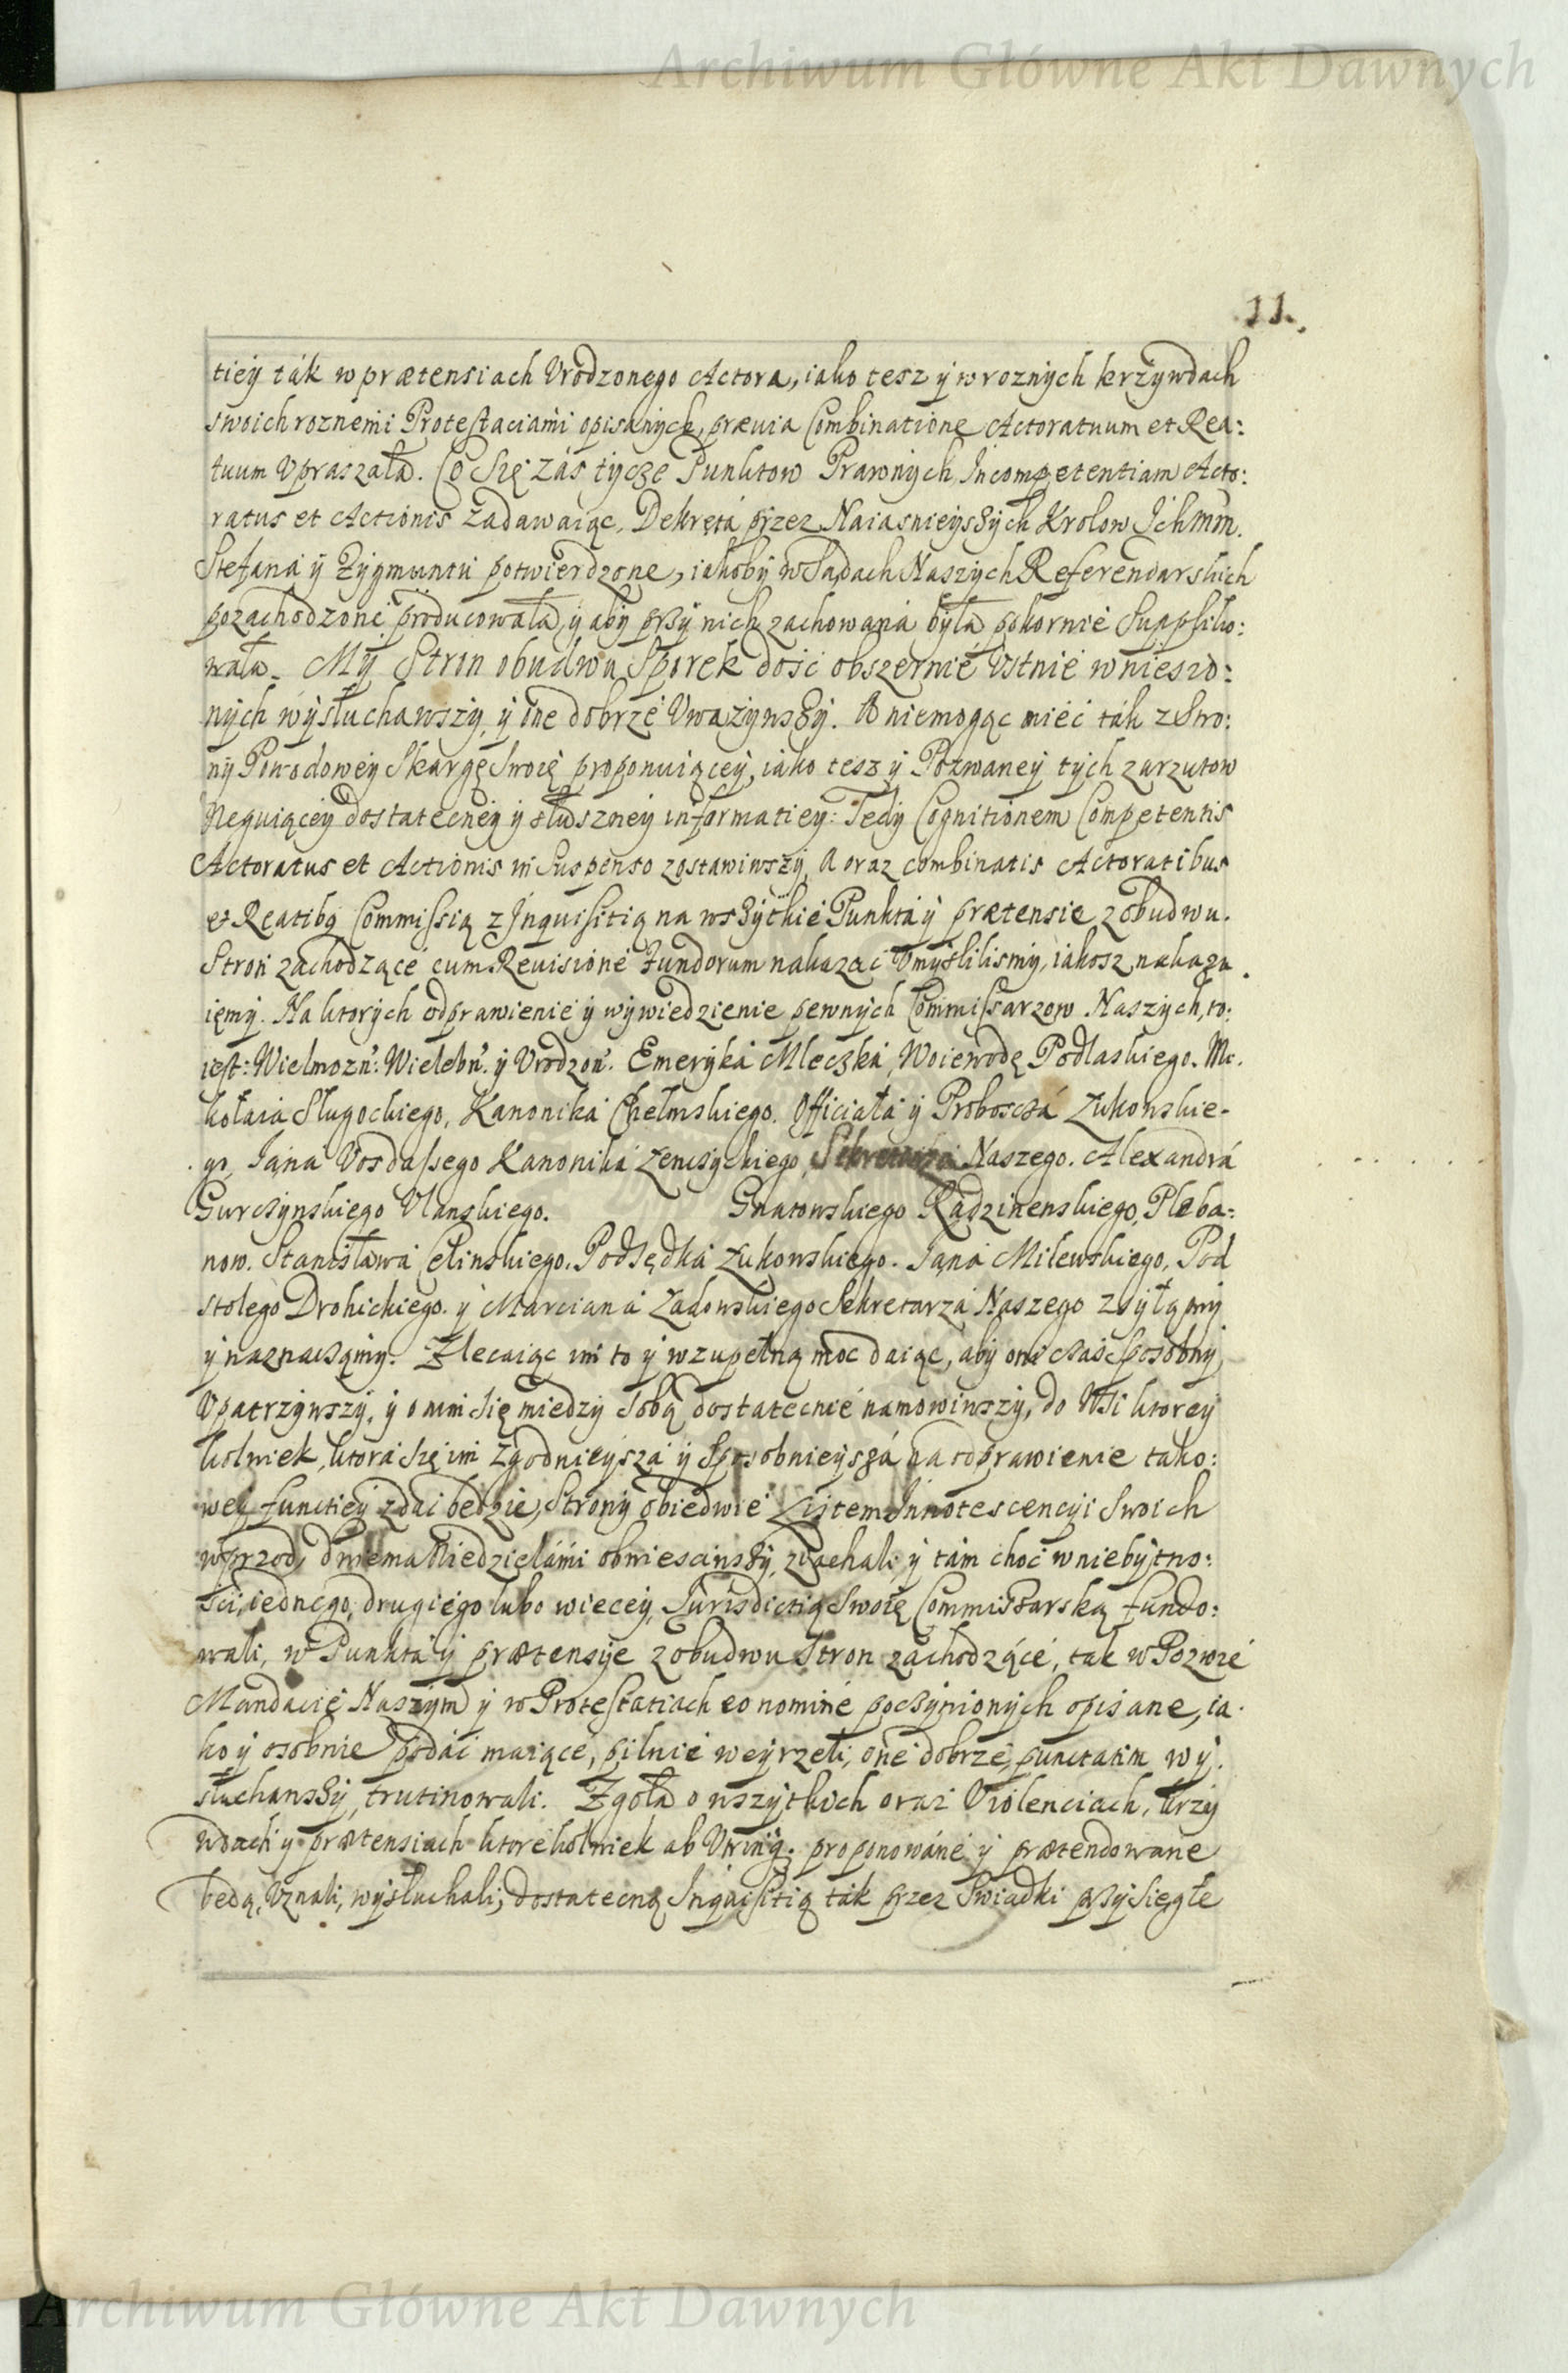 Archiwum Główne Akt Dawnych
11.
tiey ták w prætensiach Vrodzonego Actora, iako tesz y w roznych krzywdach
swoich roznemi Protestaciámi opisanych, præuia Combinatione Actoratuum et Rea:
tuum Vpraszáła. Co Się záś tycze Punktow Prawnych Incompetentiam Acto:
ratus et Actionis zadawaiąc. Dekretá przez Naiasnieyszych Krolow Ichmm.
Stefaná y Zygmuntá potwierdzone, iakoby w Sądach Naszych Referendarskich
pozachodzone producowáła, y aby przy nich zachowaná byłá pokornie Suppliko:
wáła. My Stron obudwu Sporek dość obszernie Vstnie wnieszo:
nych wysłuchawszy, y one dobrze Vważywszy. A niemogąc mieć ták z Stro:
ny Powodowey Skargę Swoię proponuiącey, iako tesz y Pozwaney tych zarzutow
Neguiącey dostatecney y słuszney informatiey: Tedy Cognitionem Competentis
Actoratus et Actionis in Suspenso zostawiwszy, A oraz combinatis Actoratibus
et Reatibq Commissią z Inquisitią na wszytkie Punktá y prætensie z obudwu
Stron zachodzące cum Reuisione Fundorum nakazać Vmyslilismy, iakosz nakazu
iemy. Na ktorych odprawienie y wywiedzienie pewnych Commissarzow Naszych, to:
iest: Wielmozn: Wielebn. y Vrodzon. Emeryká Mleczká, Woiewodę Podlaskiego. Mi.
kołaiá Sługockiego, Kanoniká Chełmskiego. Officiałá y Proboszczá Łukowskie-
go, Janá Vosdassego Kanoniká Łenczyckiego, Sekretarzá Naszego. Alexandrá
Gurczynskiego Vlanskiego. Gnatowskiego Radzinenskiego, Pleba:
now. Stanisławá Celinskiego. Podsędká Łukowskiego. Janá Milewskiego, Pod
stolego Drohickiego. y Marcianá Ładowskiego Sekretarzá Naszego zsyłamy
y naznaczamy. Zlecaiąc im to y w zupełną moc daiąc, aby oni czas Sposobny
Vpatrzywszy, y o nim się miedzy Sobą dostatecnie namowiwszy, do Wsi ktorey
kolwiek, ktora się im zgodnieysza y Sposobnieysza na odprawienie tako:
wey functiey zdać bedzie, Strony obiedwie Listem Innotescencyi Swoich
wprzod, dwiema Niedzielámi obwiesciwszy, ziachali, y tám choć w niebytno:
ści, iednego, drugiego lubo wiecey, Jurisdictią Swoię Commissarską fundo:
wali, w Punktá y prætensye z obudwu Stron zachodzące, tak w Pozwie
Mandacie Naszym y w Protestatiach eo nomine poczynionych opisane, ia.
ko y osobnie podać maiące, pilnie weyrzeli, one dobrze, punctatim wy.
słuchawszy, trutinowali. Zgoła o wszytkich oraz Violenciach, krzy
wdach y prætensiach ktorekolwiek ab Vtrinq; proponowáne y prætendowane
bedą, Vznali, wysłuchali, dostatecną Inquisitią ták przez Swiadki przysięgłe
Archiwum Główne Akt Dawnych